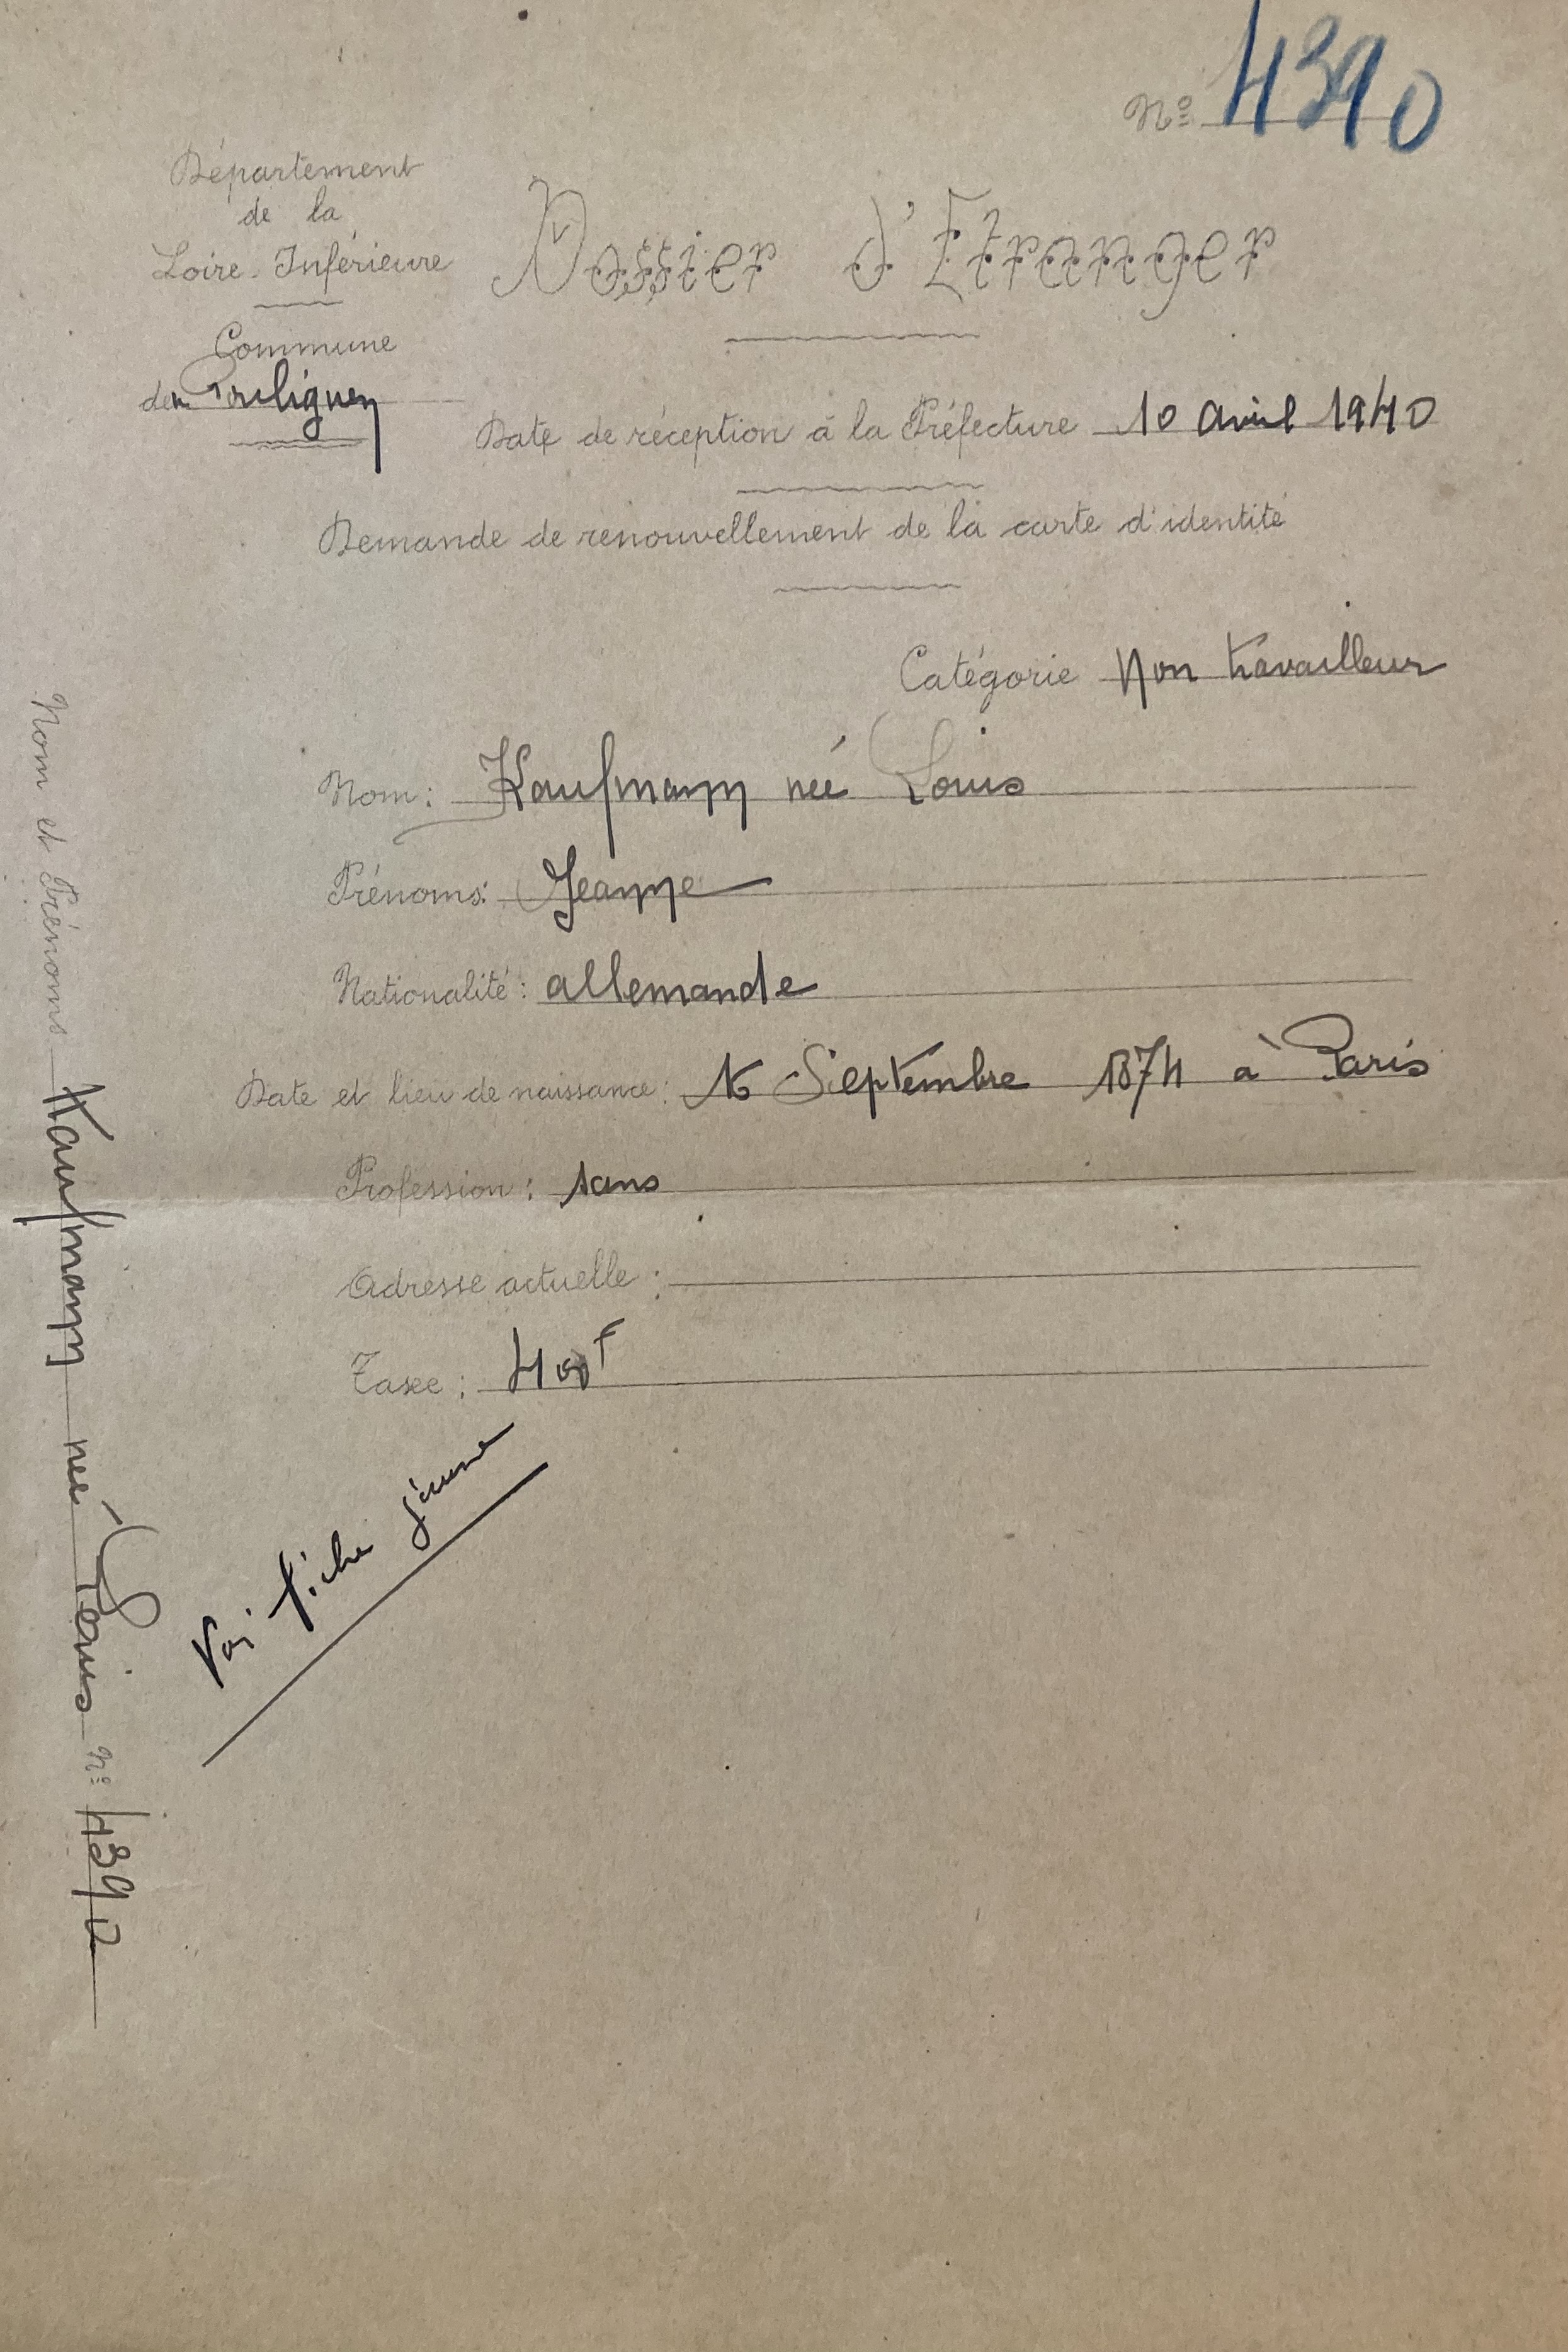 Nº 4390
Département
de la
Loire-Inférieure
Dossier d'Etranger
Commune
de Pouliguen
Date de réception à la Préfecture 10 avril 1940
Demande de renouvellement de la carte d'identité
Catégorie Non travailleur
Nom: Kaufmann née Louis
Prénoms: Jeanne
Nationalité: allemande
Date et lieu de naissance: 16 Septembre 1874 à Paris
Profession: sans
Adresse actuelle:
Taxe: 400F
Voir fiche jaune
Nom et Prénoms Kaufmann née Louis Nº 4390